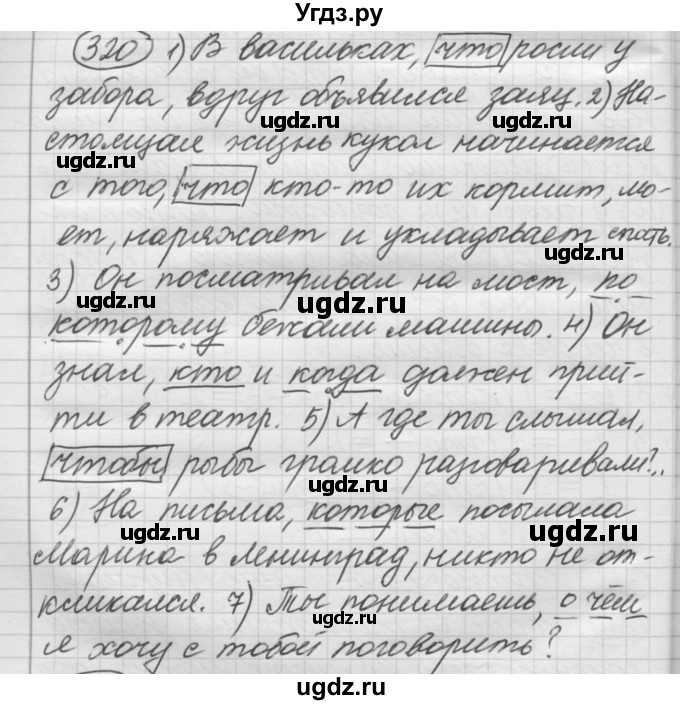 Угдз.ру
320 1) В васильках, что росли у
забора, вдруг объявился заяц. 2) На-
стоящая жизнь кукол начинается
с того, что кто-то их кормит, мо-
ет, наряжает и укладывает спать.
3) Он посматривал на мост, по
которому бежали машины. 4) Он
знал, кто и когда должен прий-
ти в театр. 5) А где ты слышал,
чтобы рыбы громко разговаривали?..
6) На письма, которые посылала
Марина в Ленинград, никто не от-
кликался. 7) Ты понимаешь, о чём
я хочу с тобой поговорить?
ugdz.ru